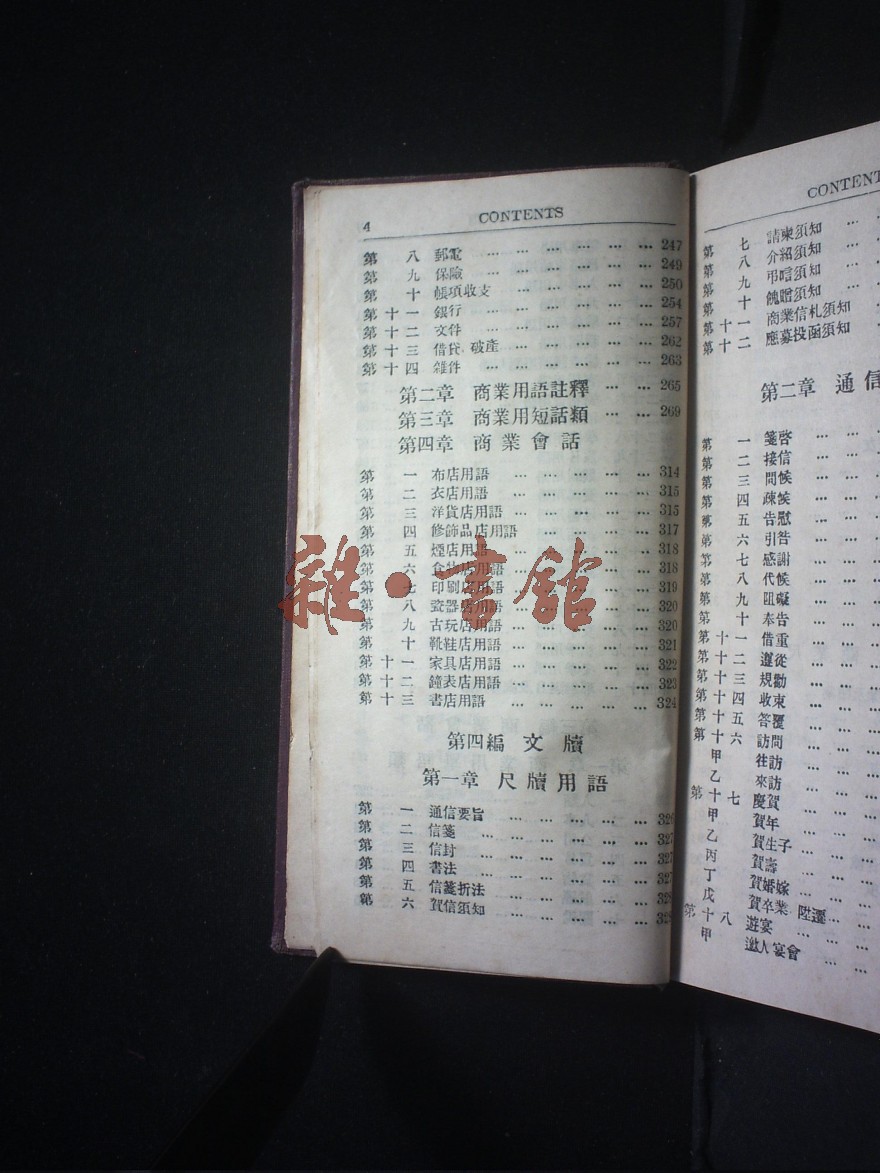 4 CONTENTS
第 八 郵電 … … … … … … 247
第 九 保險 … … … … … … 249
第 十 帳項收支 … … … … … 250
第 十 一 銀行 … … … … … … 254
第 十 二 文件 … … … … … … 257
第 十 三 借貸、破產 … … … … … 262
第 十 四 雜件 … … … … … … 263
第二章 商業用語註釋 … … … 265
第三章 商業用短話類 … … … 269
第四章 商業會話
第 一 布店用語 … … … … … … 314
第 二 衣店用語 … … … … … … 315
第 三 洋貨店用語 … … … … … 315
第 四 修飾品店用語 … … … … 317
第 五 煙店用語 … … … … … 318
第 六 食物店用語 … … … … … 318
第 七 印刷店用語 … … … … … 319
第 八 瓷器店用語 … … … … … 320
第 九 古玩店用語 … … … … … 320
第 十 靴鞋店用語 … … … … … 321
第 十 一 家具店用語 … … … … … 322
第 十 二 鐘表店用語 … … … … … 323
第 十 三 書店用語 … … … … … … 324
第四編 文牘
第一章 尺牘用語
第 一 通信要旨 … … … … … 326
第 二 信箋 … … … … … … 327
第 三 信封 … … … … … … 327
第 四 書法 … … … … … … 327
第 五 信箋折法 … … … … …
第 六 賀信須知 … … … …
雜·書館
CONTENT
第 七 請柬須知 …
第 八 介紹須知 … …
第 九 弔唁須知 … …
第 十 餽贈須知 … …
第 十 一 商業信札須知 …
第 十 二 應募投函須知 …
第二章 通信
第 一 箋啓 … …
第 二 接信 … …
第 三 問候 … …
第 四 疎候 … …
第 五 告慰 … …
第 六 引咎 … …
第 七 感謝 … …
第 八 代候 … …
第 九 阻礙 … …
第 十 奉告 … …
第 十 一 借重 … …
第 十 二 遵從 … …
第 十 三 規勸 … …
第 十 四 收束 … …
第 十 五 答覆 … …
第 十 六 訪問 … …
甲 往訪 … …
乙 來訪 … …
第 十 七 慶賀 … …
甲 賀年 … …
乙 賀生子 … …
丙 賀壽 … …
丁 賀婚嫁 … …
戊 賀卒業 陞遷 …
第 十 八 遊宴 … …
甲 邀人宴會 … …